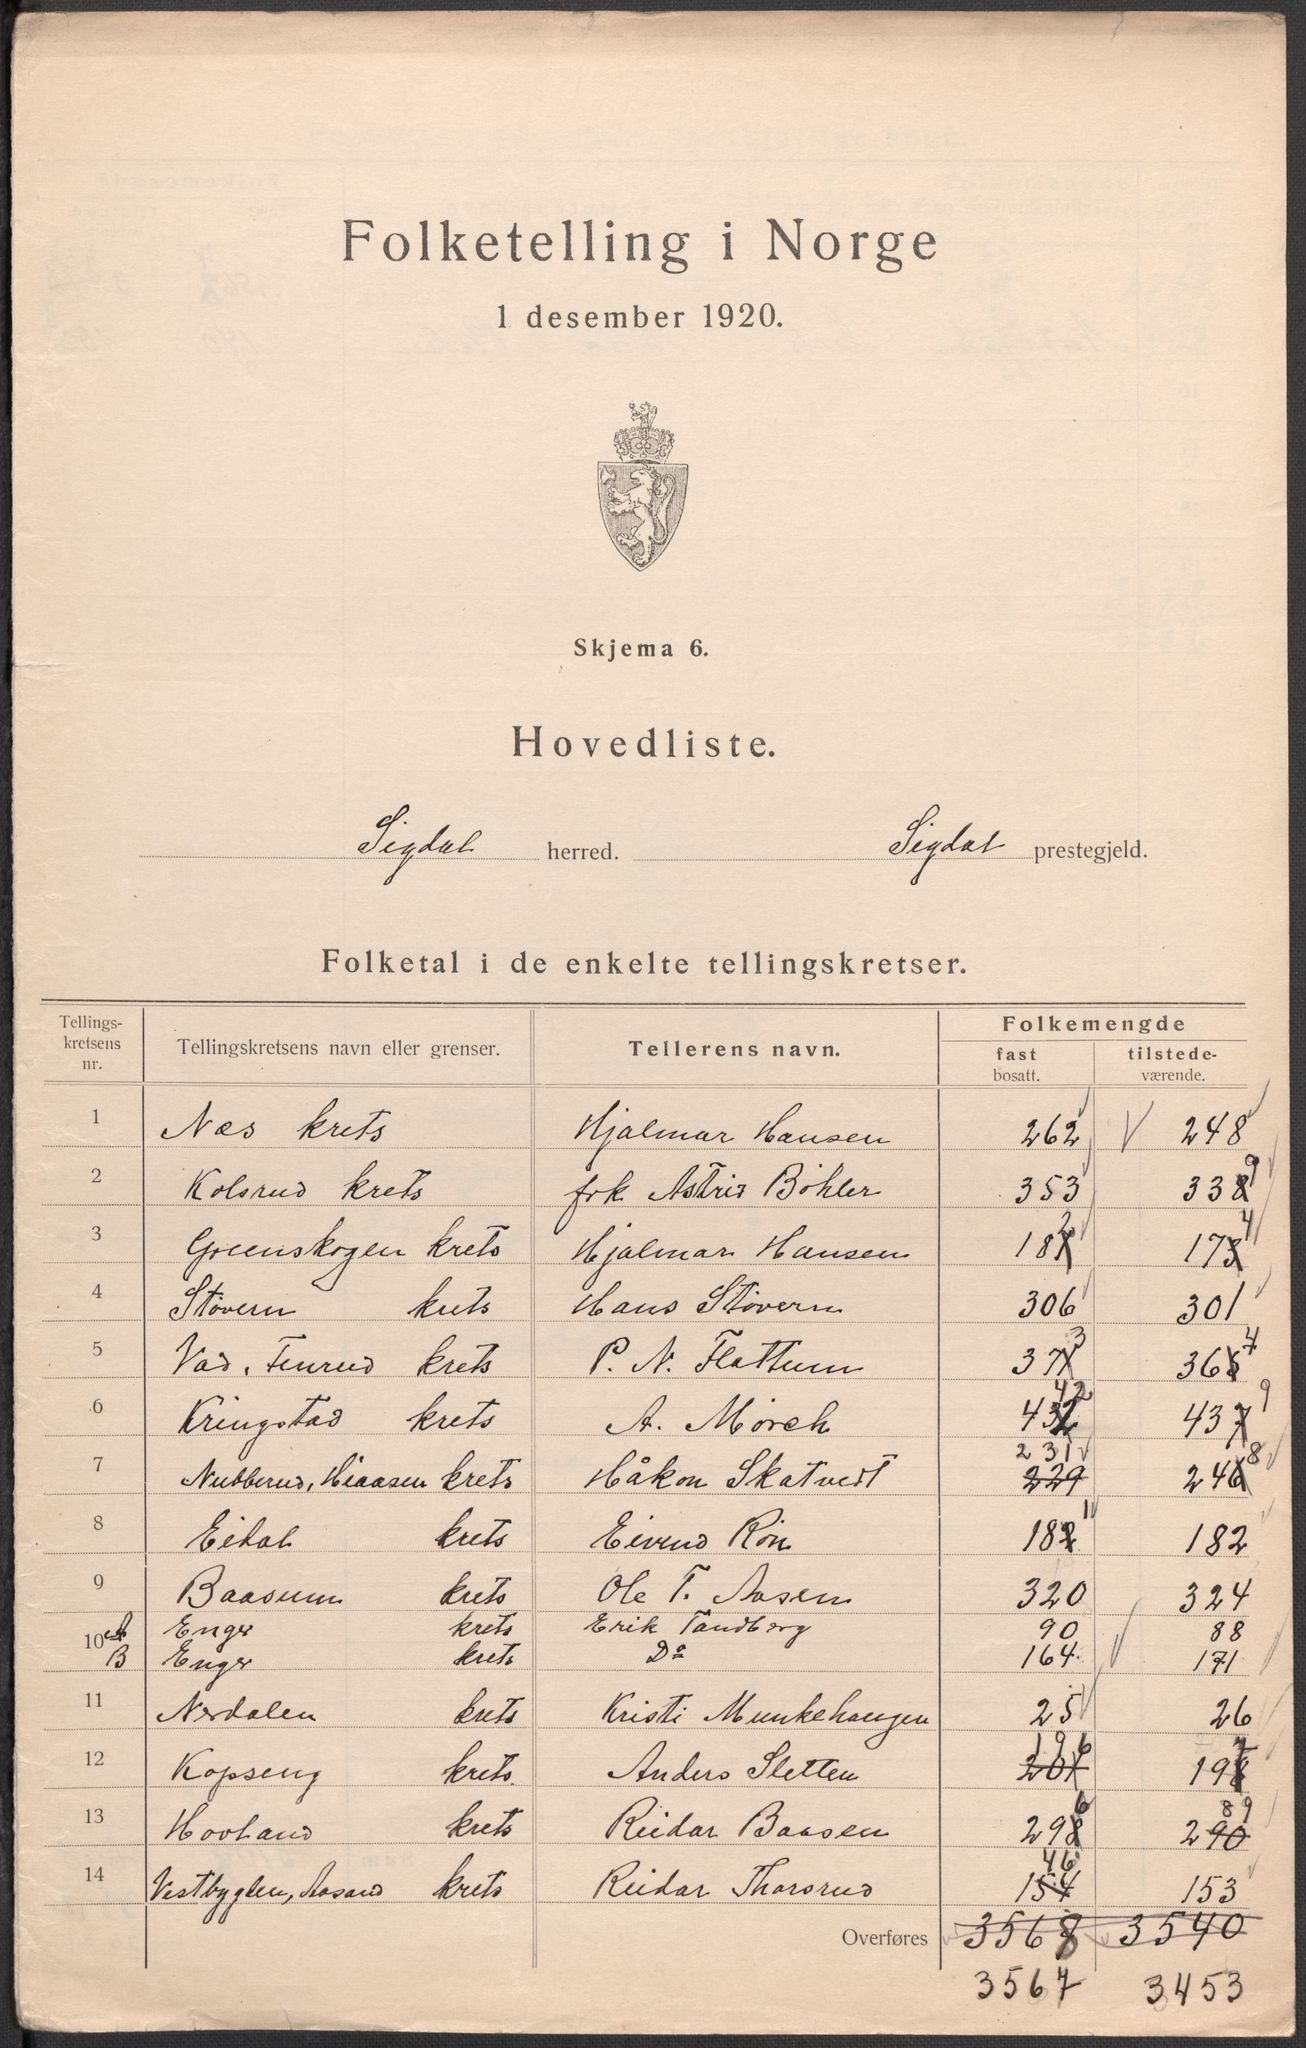 Folketelling i Norge
1 desember 1920.
Skjema 6.
Hovedliste.
Sigdal herred. Sigdal prestegjeld.
Folketal i de enkelte tellingskretser.
Tellings-kretsens nr. Tellingskretsens navn eller grenser. Tellerens navn. Folkemengde
fast bosatt. tilstede-værende.
1 Næs krets Hjalmar Hansen 262 248
2 Kolsrud krets frk Astrid Böhler 353 338 9
3 Greenskogen krets Hjalmar Hansen 181 2 173 4
4 Støvern krets Hans Støvern 306 301
5 Vad, Tenrud krets P. N. Flattum 371 3 365 4
6 Kringstad krets A. Mörch 432 42 437 9
7 Nubberud, Hiaasen krets Håkon Skatvedt 229 231 246 8
8 Eidal krets Eivind Rön 182 1 182
9 Baasum krets Ole T. Aasen 320 324
10 A Enger krets Erik Tandberg 90 88
B Enger krets Do 164 171
11 Nerdalen krets Kristi Munkehaugen 25 26
12 Kopseng krets Anders Sletten 201 196 198 7
13 Hovland krets Reidar Baasen 298 6 290 89
14 Vestbygden, Aasand krets Reidar Thorsrud 154 46 153
Overføres 3568 3540
3567 3453